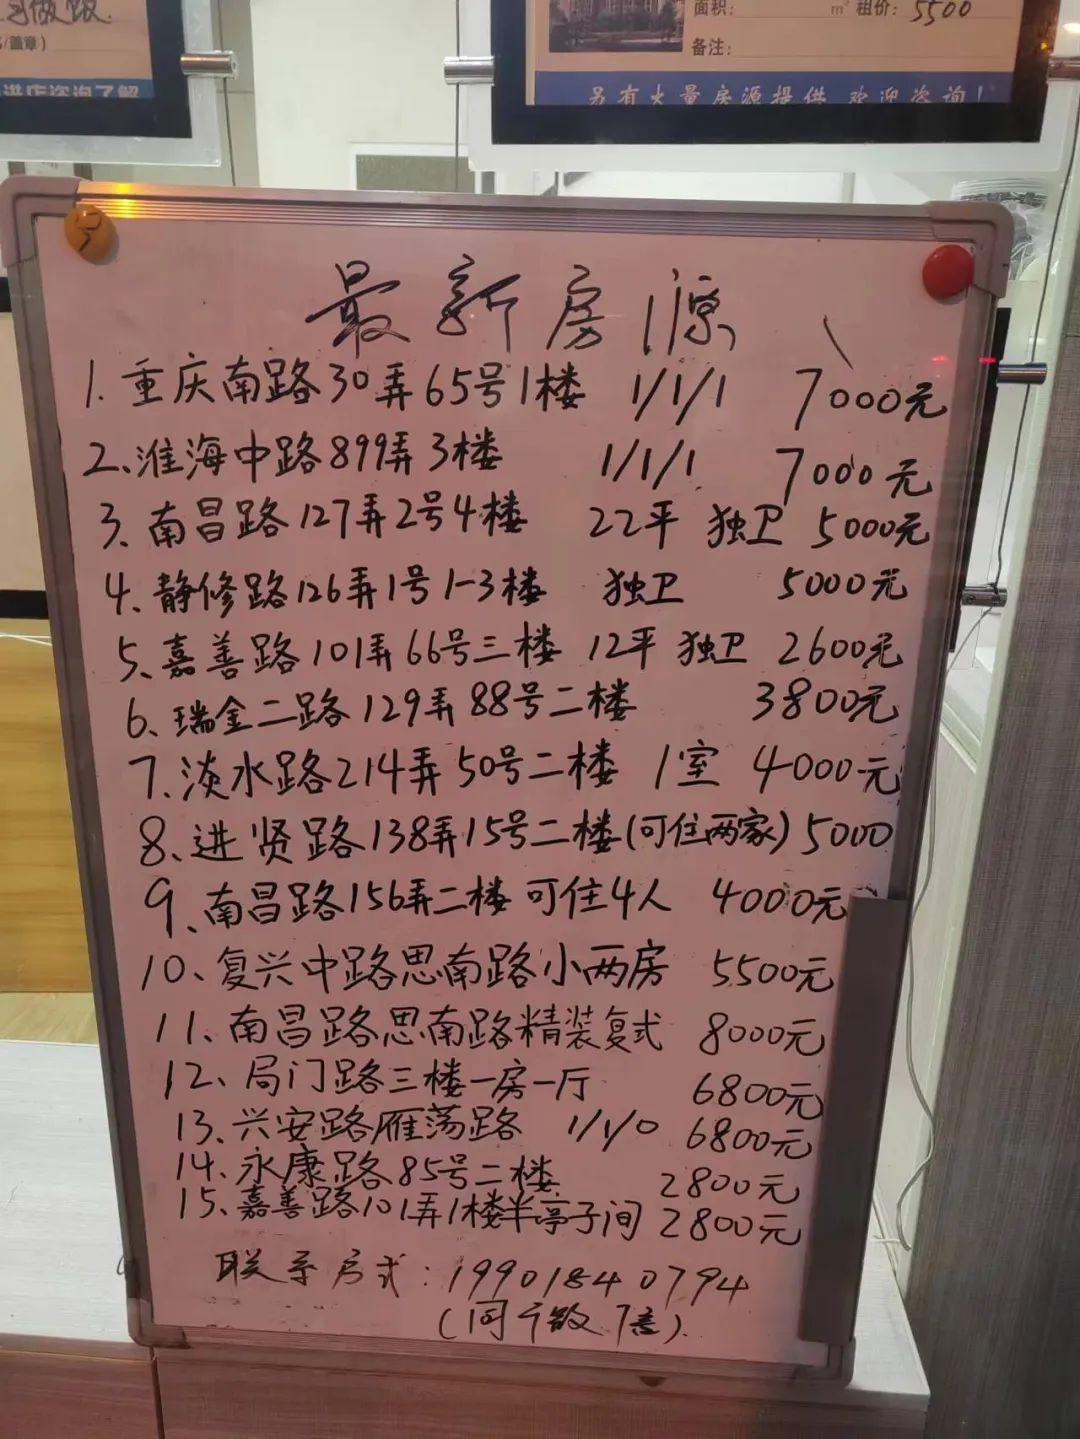 /盖章)
进店咨询了解
面积: m² 租价: 5500
备注:
另有大量房源提供 欢迎咨询!
最新房源
1、重庆南路30弄65号1楼 1/1/1 7000元
2、淮海中路899弄3楼 1/1/1 7000元
3、南昌路127弄2号4楼 22平 独卫 5000元
4、静修路126弄1号1-3楼 独卫 5000元
5、嘉善路101弄66号三楼 12平 独卫 2600元
6、瑞金二路129弄88号二楼 3800元
7、淡水路214弄50号二楼 1室 4000元
8、进贤路138弄15号二楼(可住两家) 5000
9、南昌路156弄二楼 可住4人 4000元
10、复兴中路思南路小两房 5500元
11、南昌路思南路精装复式 8000元
12、局门路三楼一房一厅 6800元
13、兴安路雁荡路 1/1/0 6800元
14、永康路85号二楼 2800元
15、嘉善路101弄1楼半亭子间 2800元
联系方式: 19901840794
(同